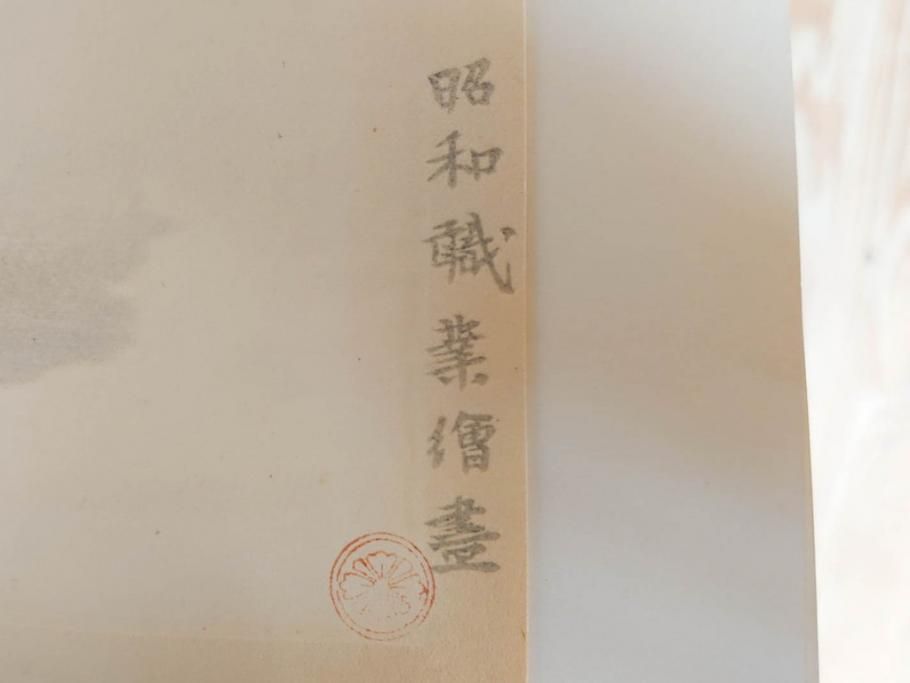 昭和職業繪盡